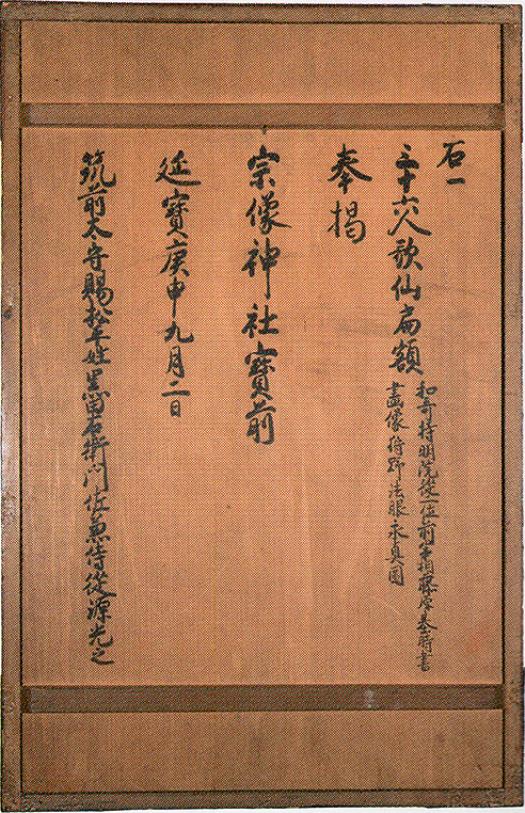 右一
三十六人歌仙扁額
和哥持明院従一位前宰相藤原基時書
畫像狩野法眼永真圖
奉掲
宗像神社寳前
延寳庚申九月二日
筑前太守賜松平姓黒田右衛門佐兼侍從源光之